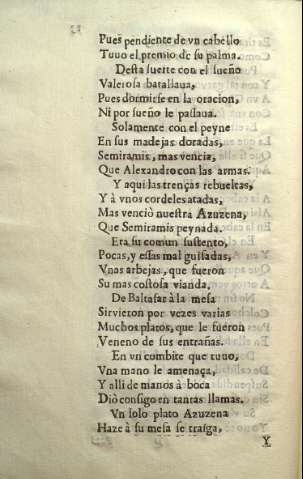 Pues pendiente de vn cabello
Tuuo el premio de su palma.
Desta suerte con el sueño
Valerosa batallaua,
Pues dormirse en la oracion,
Ni por sueño le passaua.
Solamente con el peyne
En sus madejas doradas,
Semiramis, mas vencia,
Que Alexandro con las armas.
Y aqui las trenças rebueltas,
Y à vnos cordeles atadas,
Mas venciò nuestra Azuzena,
Que Semiramis peynada.
Era su comun sustento,
Pocas, y essas mal guisadas,
Vnas arbejas, que fueron
Su mas costosa vianda.
De Baltasar à la mesa
Sirvieron por vezes varias
Muchos platos, que le fueron
Veneno de sus entrañas.
En vn combite que tuuo,
Vna mano le amenaça,
Y alli de manos à boca
Diò consigo en tantas llamas.
Vn solo plato Azuzena
Haze à su mesa se trasga,
Y